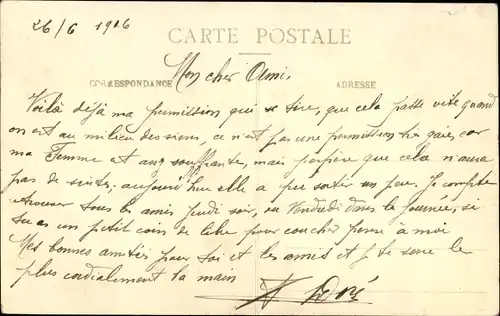 26/6 1916
CARTE POSTALE
CORRESPONDANCE
ADRESSE
Mon cher Ami,
Voilà déjà ma permission qui se tire, que cela passe vite quand
on est au milieu des siens, ce n'est pas une permission très gaie, car
ma Femme est assez souffrante, mais j'espère que cela n'aura
pas de suite, aujourd'hui elle a pu sortir un peu. Je compte
retrouver tous les amis jeudi soir, ou Vendredi dans la journée, si
tu as un petit coin de libre pour coucher pense à moi
Mes bonnes amitiés pour toi et les amis et je te serre le
plus cordialement la main